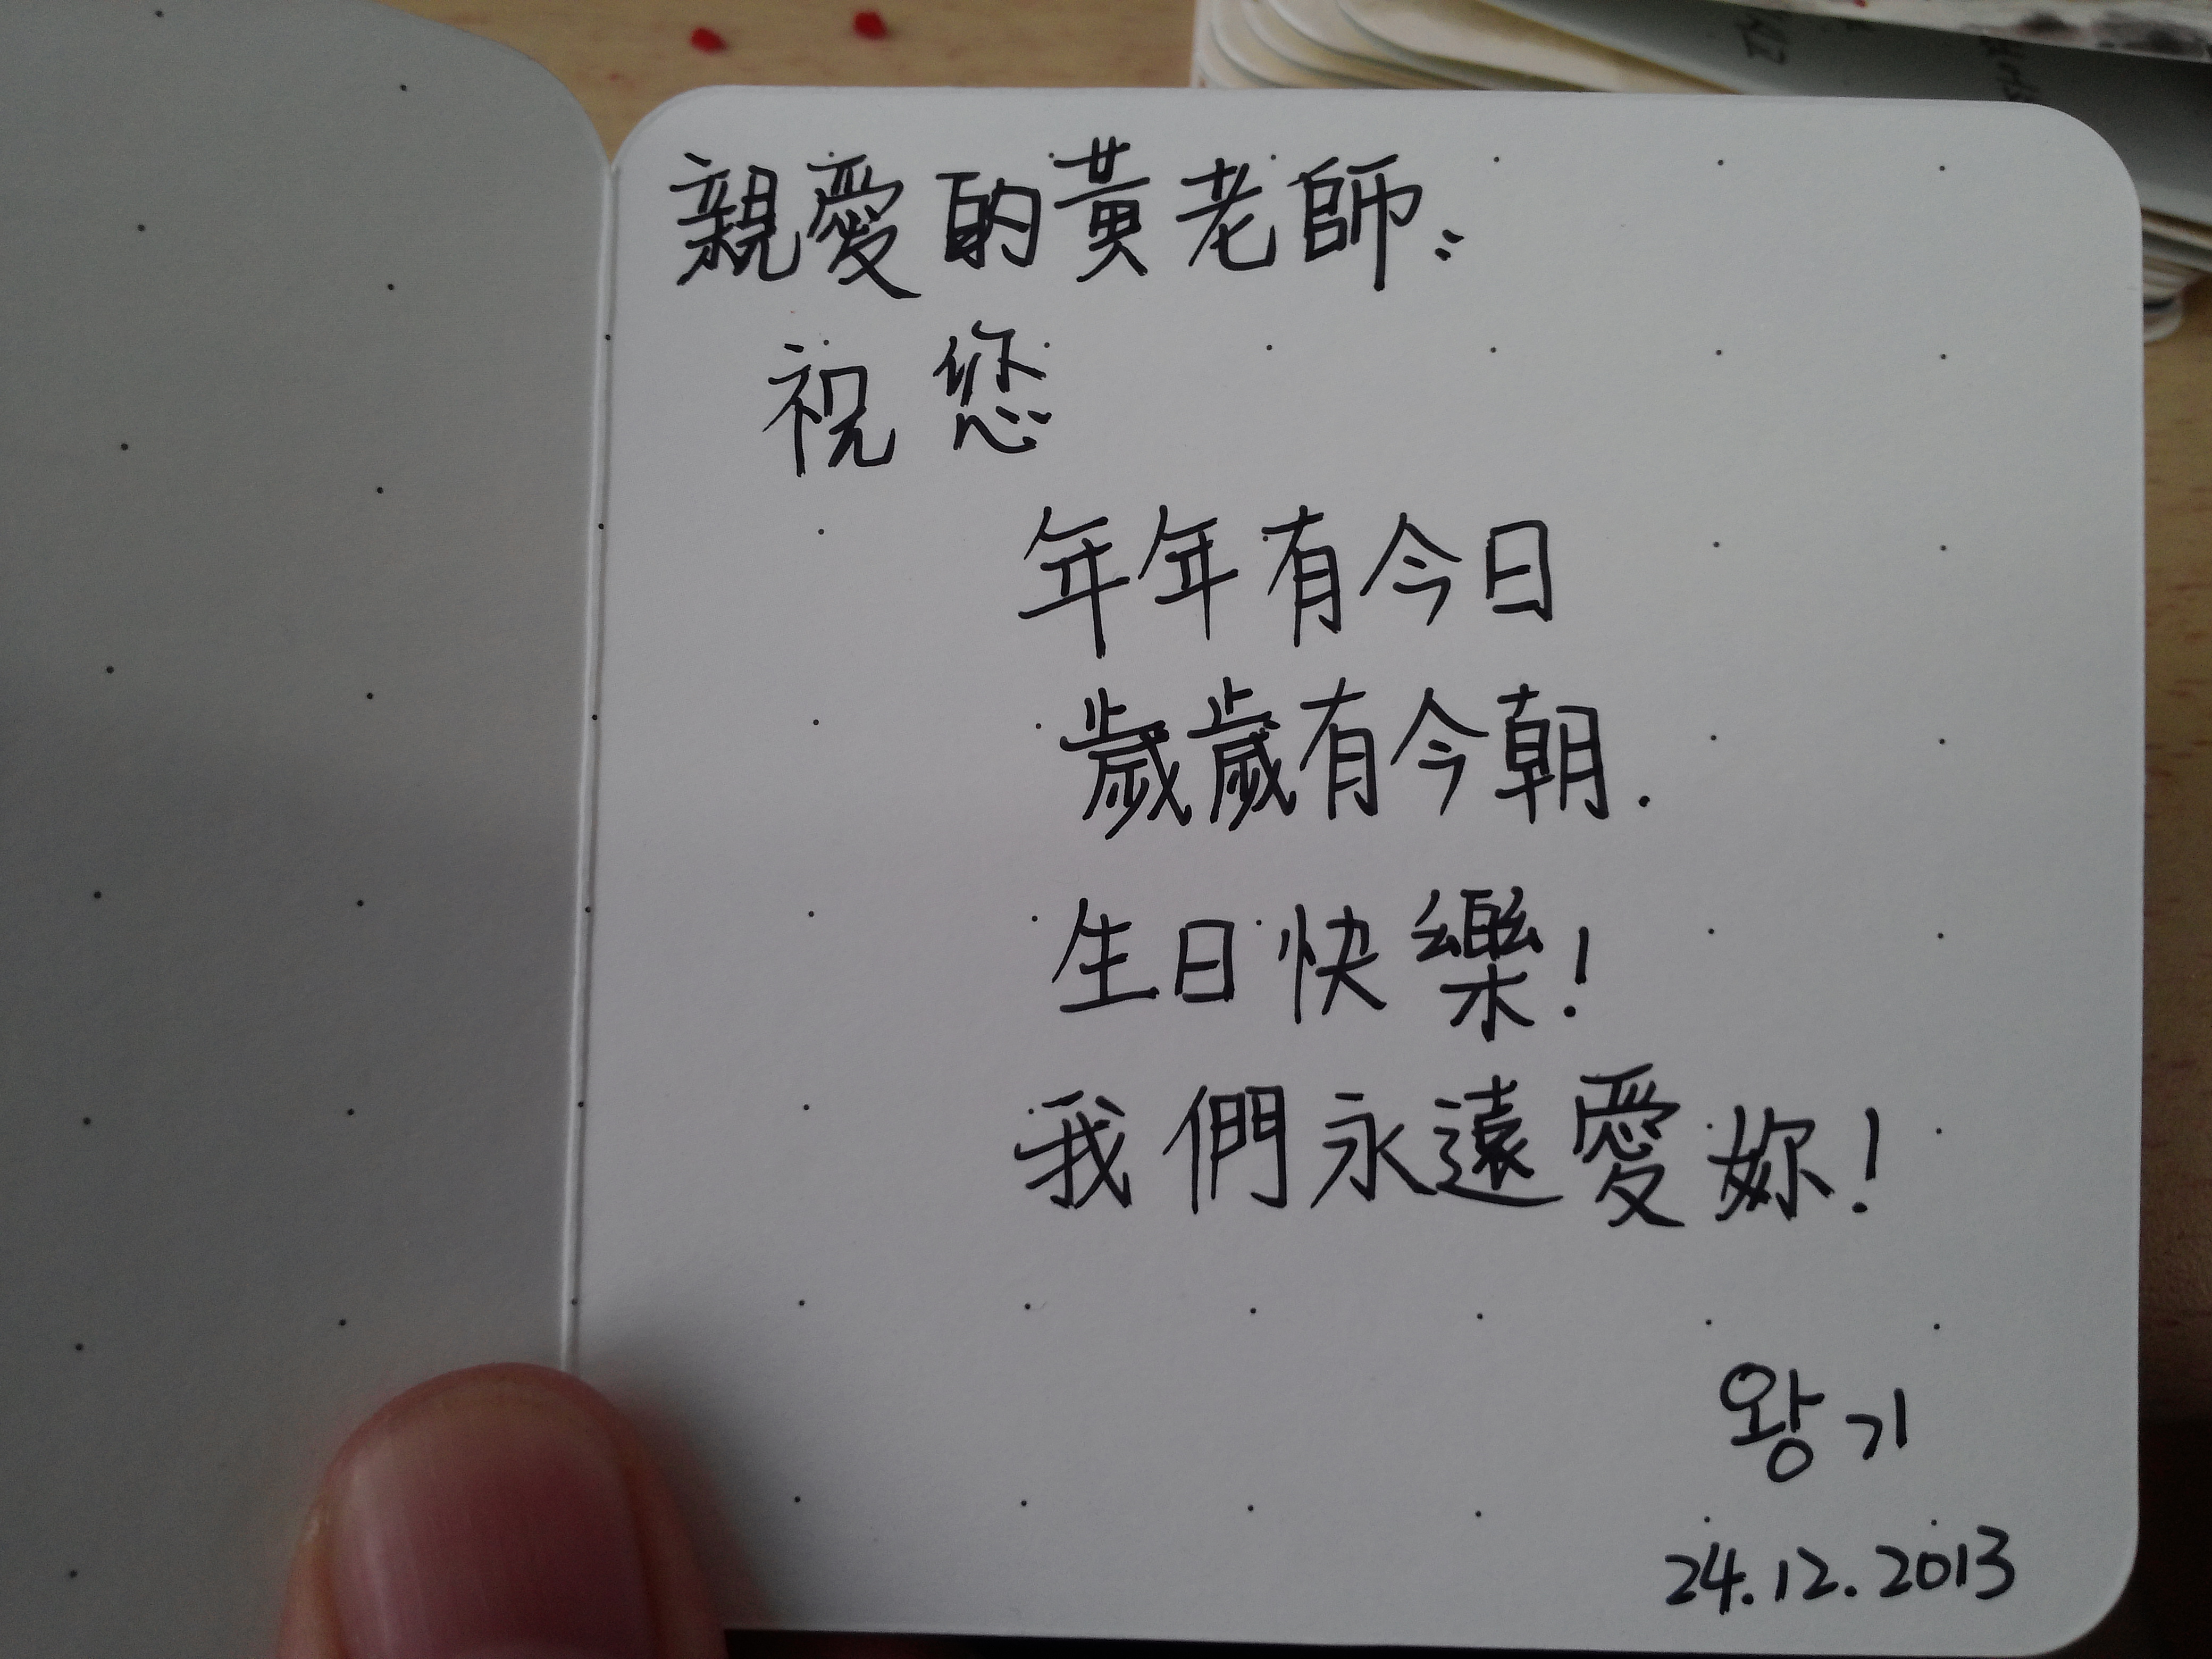 親愛的黃老師:
祝您
年年有今日
歲歲有今朝.
生日快樂!
我們永遠愛妳!
왕기
24.12.2013